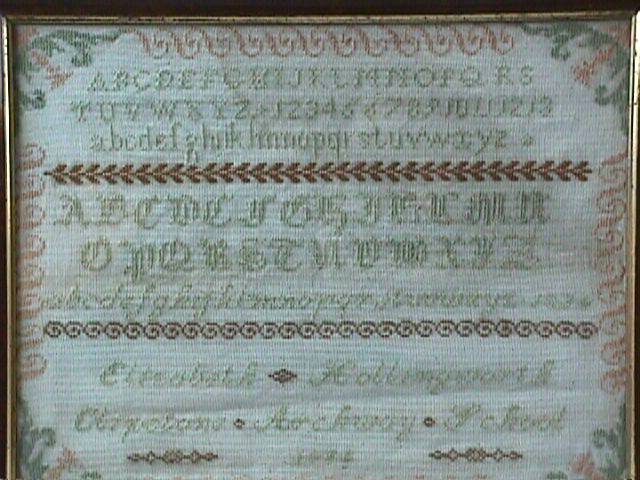 ABCDEFGHIJKLMNOPQRS
TUVWXYZ 12345678910111213
abcdefghijklmnopqrstuvwxyz
ABCDEFGHIJKLMN
OPQRSTUVWXYZ
abcdefghijklmnopqrstuvwxyz
Elizabeth Hollingworth
Archway School